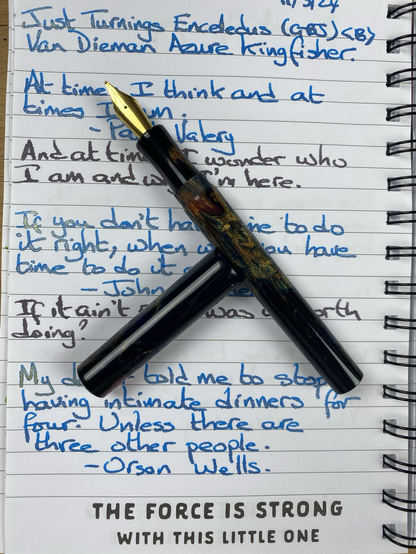 11/3/24
Just Turnings Enceledus (GBJ) <B>
Van Dieman Azure Kingfisher.
At time I think and at
times I am.
- Pa Valery
And at tim I wonder who
I am and w I'm here.
If you don't ha time to do
it right, when w you have
time to do it
- John
If it ain't was worth
doing?
My d told me to stop
having intimate dinners for
four. Unless there are
three other people.
- Orson Wells.
THE FORCE IS STRONG
WITH THIS LITTLE ONE